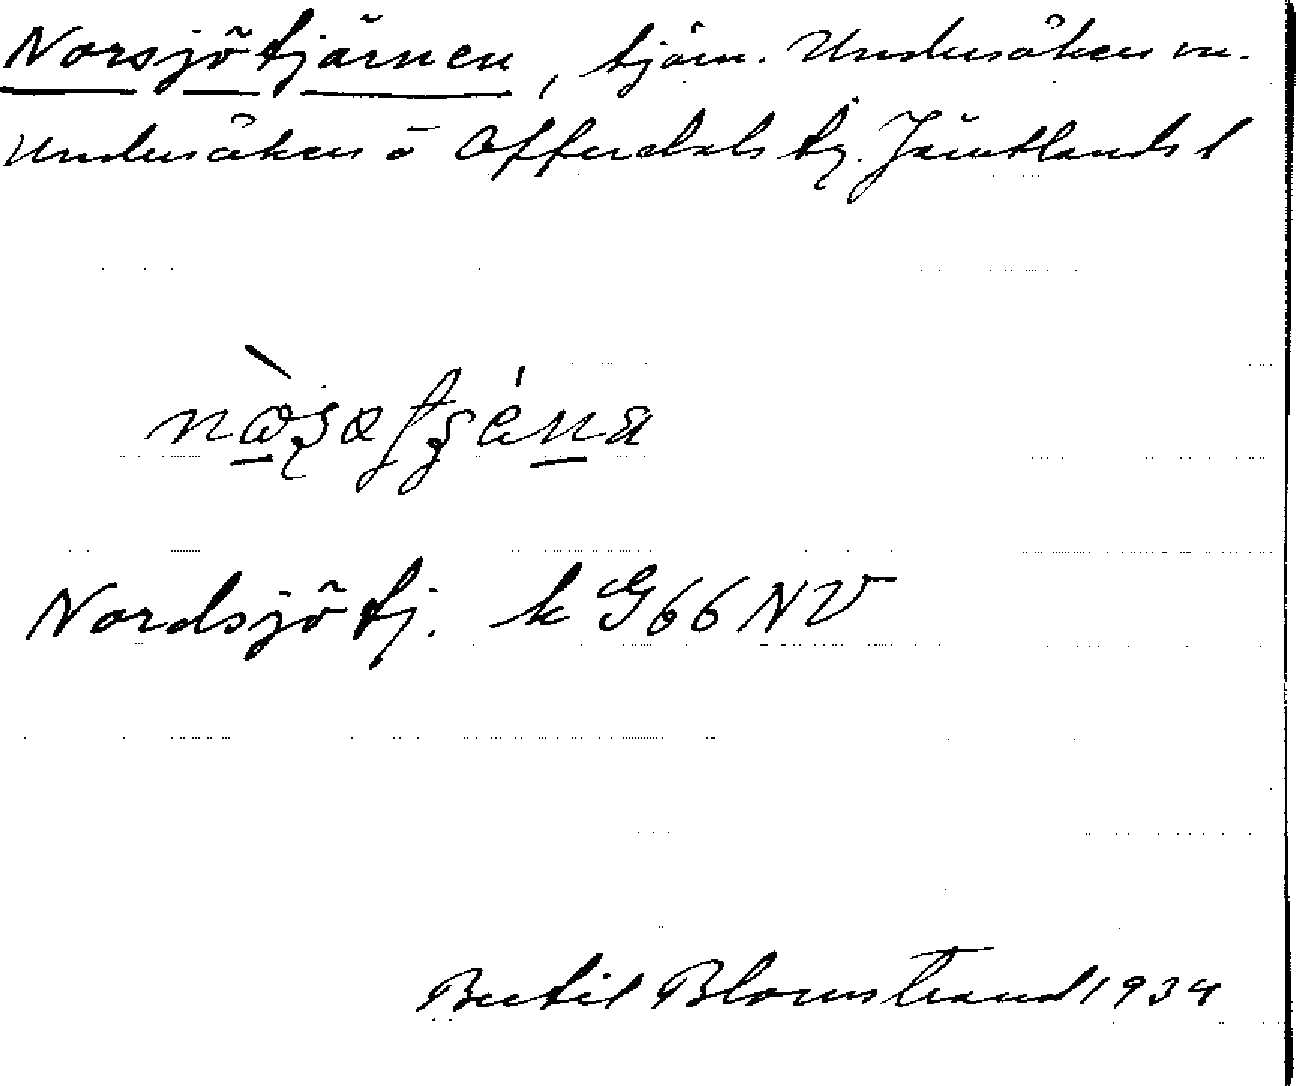 Norsjötjärnen, tjärn. Undersåkers sn.
Undersåkers o Offerdals tg. Jämtlands l
Nordsjötj. k G66NV
Bertil Blomstrand 1934